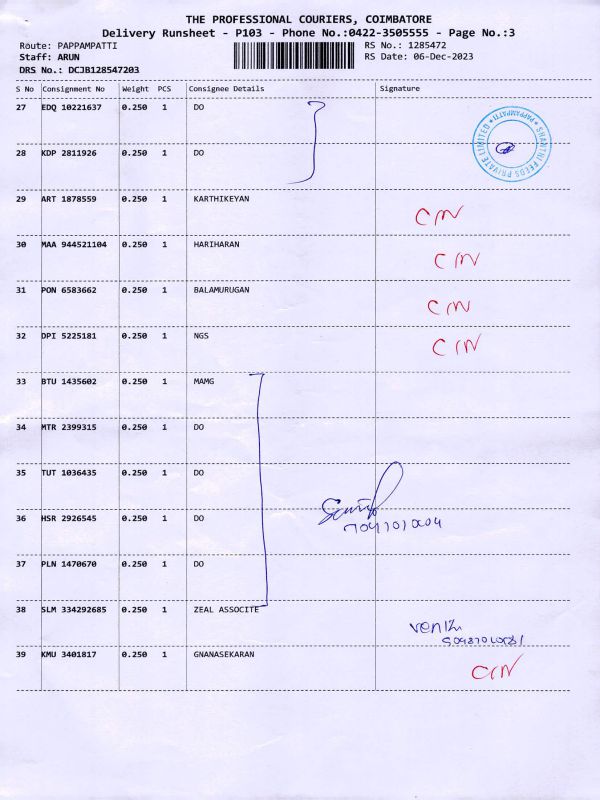 THE PROFESSIONAL COURIERS, COIMBATORE
Delivery Runsheet - P103 - Phone No.:0422-3505555 - Page No.:3
Route: PAPPAMPATTI RS No.: 1285472
Staff: ARUN RS Date: 06-Dec-2023
DRS No.: DCJB128547203
S No Consignment No Weight PCS Consignee Details Signature
27 EDQ 10221637 0.250 1 DO
SHANTHI FEEDS PRIVATE LIMITED * PAPPAMPATTI *
28 KDP 2811926 0.250 1 DO
29 ART 1878559 0.250 1 KARTHIKEYAN
CIN
30 MAA 944521104 0.250 1 HARIHARAN
CIN
31 PON 6583662 0.250 1 BALAMURUGAN
CIN
32 DPI 5225181 0.250 1 NGS
CIN
33 BTU 1435602 0.250 1 MAMG
34 MTR 2399315 0.250 1 DO
35 TUT 1036435 0.250 1 DO
36 HSR 2926545 0.250 1 DO
37 PLN 1470670 0.250 1 DO
38 SLM 334292685 0.250 1 ZEAL ASSOCITE
39 KMU 3401817 0.250 1 GNANASEKARAN
CIN